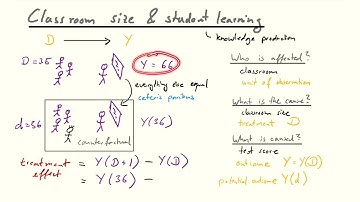 Classroom size & student learning
D → Y
knowledge production
D=35
Y = 66
Who is affected?
classroom
unit of observation
everything else equal
ceteris paribus
What is the cause?
classroom size
treatment D
d=36
Y(36)
counterfactual
What is caused?
test score
outcome Y=Y(D)
potential outcome Y(d)
treatment effect = Y(D+1) - Y(D)
= Y(36) -